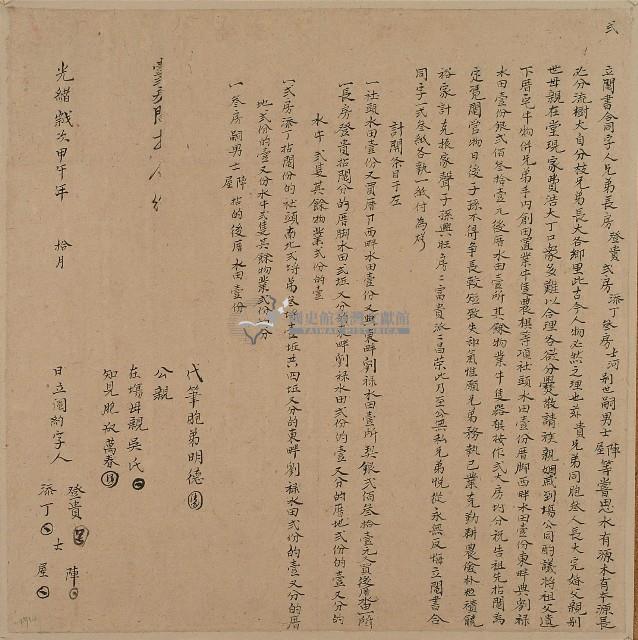 弍
立鬮書合同字人兄弟長房登貴弍房添丁叁房士河別世嗣男士陣屋等嘗思水有源木有本源長
必分流樹大自分枝兄弟長大各鄉里此古今人物必然之理也茲貴兄弟同胞叁人長大完婚父親別
世母親在堂現家費浩大丁口衆多難以合理各欲分爨敬請族親姻戚到塲公同酌議將祖父遺
下厝宅牛物併兄弟手內創田置業牛隻農棋等項社頭水田壹份厝脚西畔水田壹份東畔典劉祿
水田壹份銀弍佰叁拾壹元後厝水田壹所其餘物業牛隻器椇按作弍大房均分祝告祖先拈鬮為
定寬鬮當物日後子孫不得爭長較短致失和氣惟願兄弟務執己業克勤耕農儉朴粒積競
裕家計克振家聲子孫興旺房房富貴派派昌榮此乃至公無私兄弟悅從永無反悔立鬮書合
同字一式叁紙各執一紙付為炤
計開条目于左
一社頭水田壹份又買厝下西畔水田壹份又典東畔劉祿水田壹所契銀弍佰叁拾壹元又買後厝水田一所
一長房登貴拈鬮分的厝脚水田弍坵又分的東畔劉祿水田弍份的壹又分的厝地弍份的壹又分的
水牛弍隻其餘物業弍份的壹
一弍房添丁拈鬮份的社頭南北弍坵共四坵又分的東畔劉祿水田弍份的壹又分的厝
地弍份的壹又份水牛弍隻其餘物業弍份的分
一叁房嗣男士陣屋拈的後厝水田壹份
代筆胞弟明德
公親
在塲母親吳氏
知見胞叔萬春
光緒歲次甲午年拾月日立鬮約字人登貴添丁士陣屋
國史館臺灣文獻館
TAIWAN HISTORICA